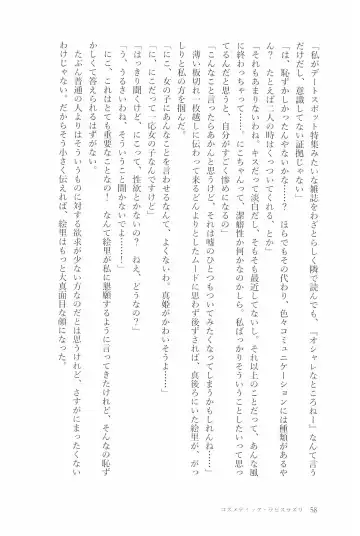 「私がデートスポット特集みたいな雑誌をわざとらしく隣で読んでも、『オシャレなところねー』なんて言う
だけだし、意識してない証拠じゃない？」
「は、恥ずかしかったんやないかな……？　ほらでもその代わり、色々コミュニケーションには種類があるや
ん？　たとえば二人の時はくっついてくれる、とか」
「それもあまりないわね。キスだって淡白だし、そもそも最近してないし。それ以上のことだって、あんな風
に終わっちゃって……。にこちゃんって、潔癖性か何かなのかしら。私ばっかりそういうことしたいって思っ
てるんだと思うと、自分がすごく惨めになるの」
「こんなこと言ったらあかんと思うけど、それは嘘のひとつもついてみたくなってしまうかもしれんね」
薄い板切れ一枚越しに伝わって来るどんよりとしたムードに思わず後ずされば、真後ろにいた絵里が、がっ
しりと私の肩を掴んだ。
「にこ、女の子にあんなこと言わせるなんて、よくないわ。真姫がかわいそうよ……」
「に、にこだって一応女の子なんですけど」
「はっきり聞くけど、にこって、性欲とかないの？　ねえ、どうなの？」
「う、うるさいわね、そういうこと聞かないでよ……！」
「にこ、これはとても重要なことなの！　なんて絵里が私に懇願するように言ってきたけれど、そんなの恥ず
かしくて答えられるはずがない。
たぶん普通の人よりはそういうものに対する欲求が少ない方なのだとは思うけれど、さすがにまったくない
わけじゃない。だからそう小さく伝えれば、絵里はもっと大真面目な顔になった。
58